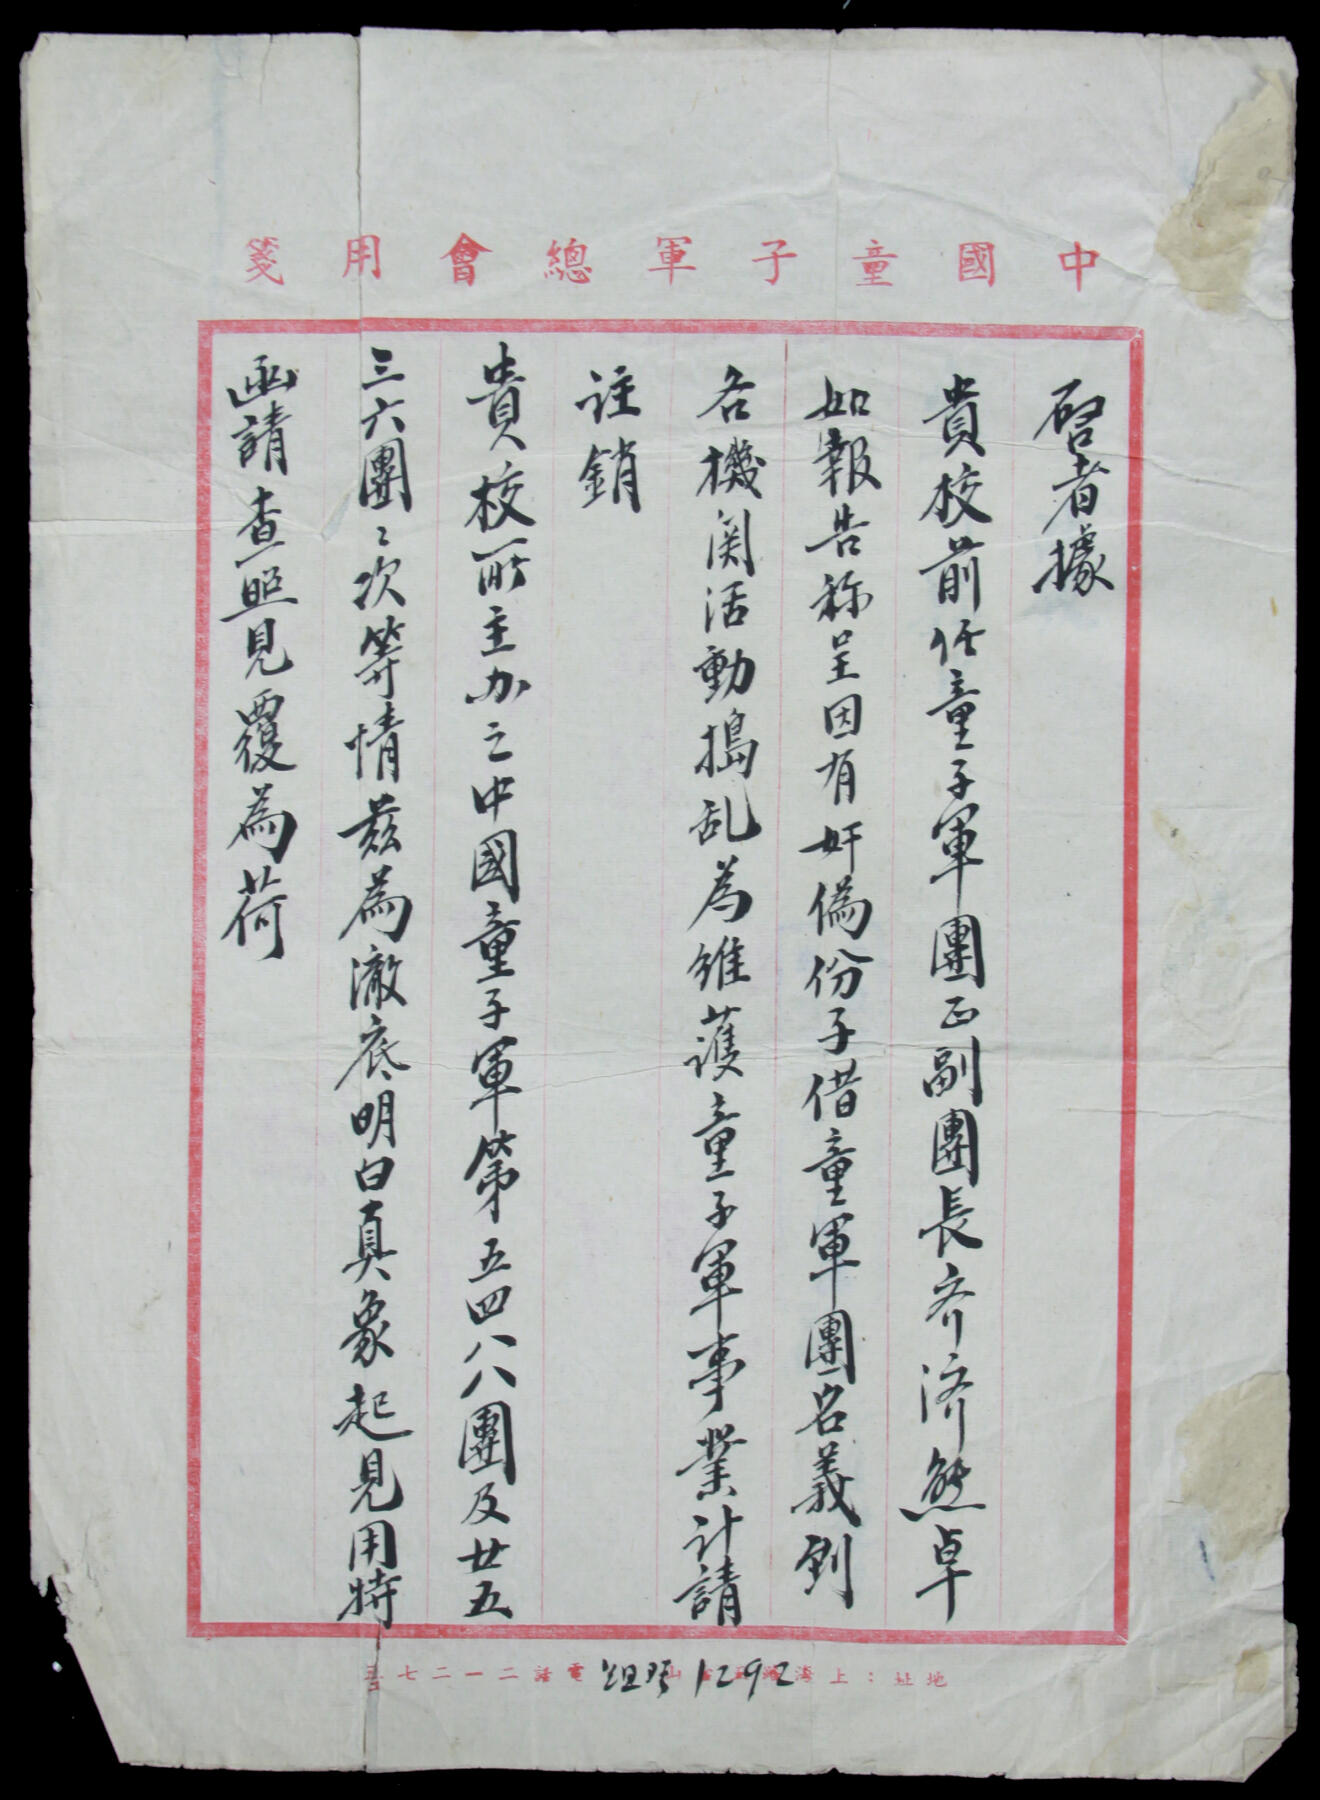 中國童子軍總會用箋
啓者據
貴校前任童子軍團正副團長齐济熊卓
如報告称呈因有奸偽份子借童軍團名義到
各機関活動搗乱為維護童子軍事業計請
註銷
貴校所主办之中國童子軍第五四八八團及廿五
三六團二次等情兹為澈底明白真象起見用特
函請查照見覆為荷
地址：上海
電話二一二七七
組 1292